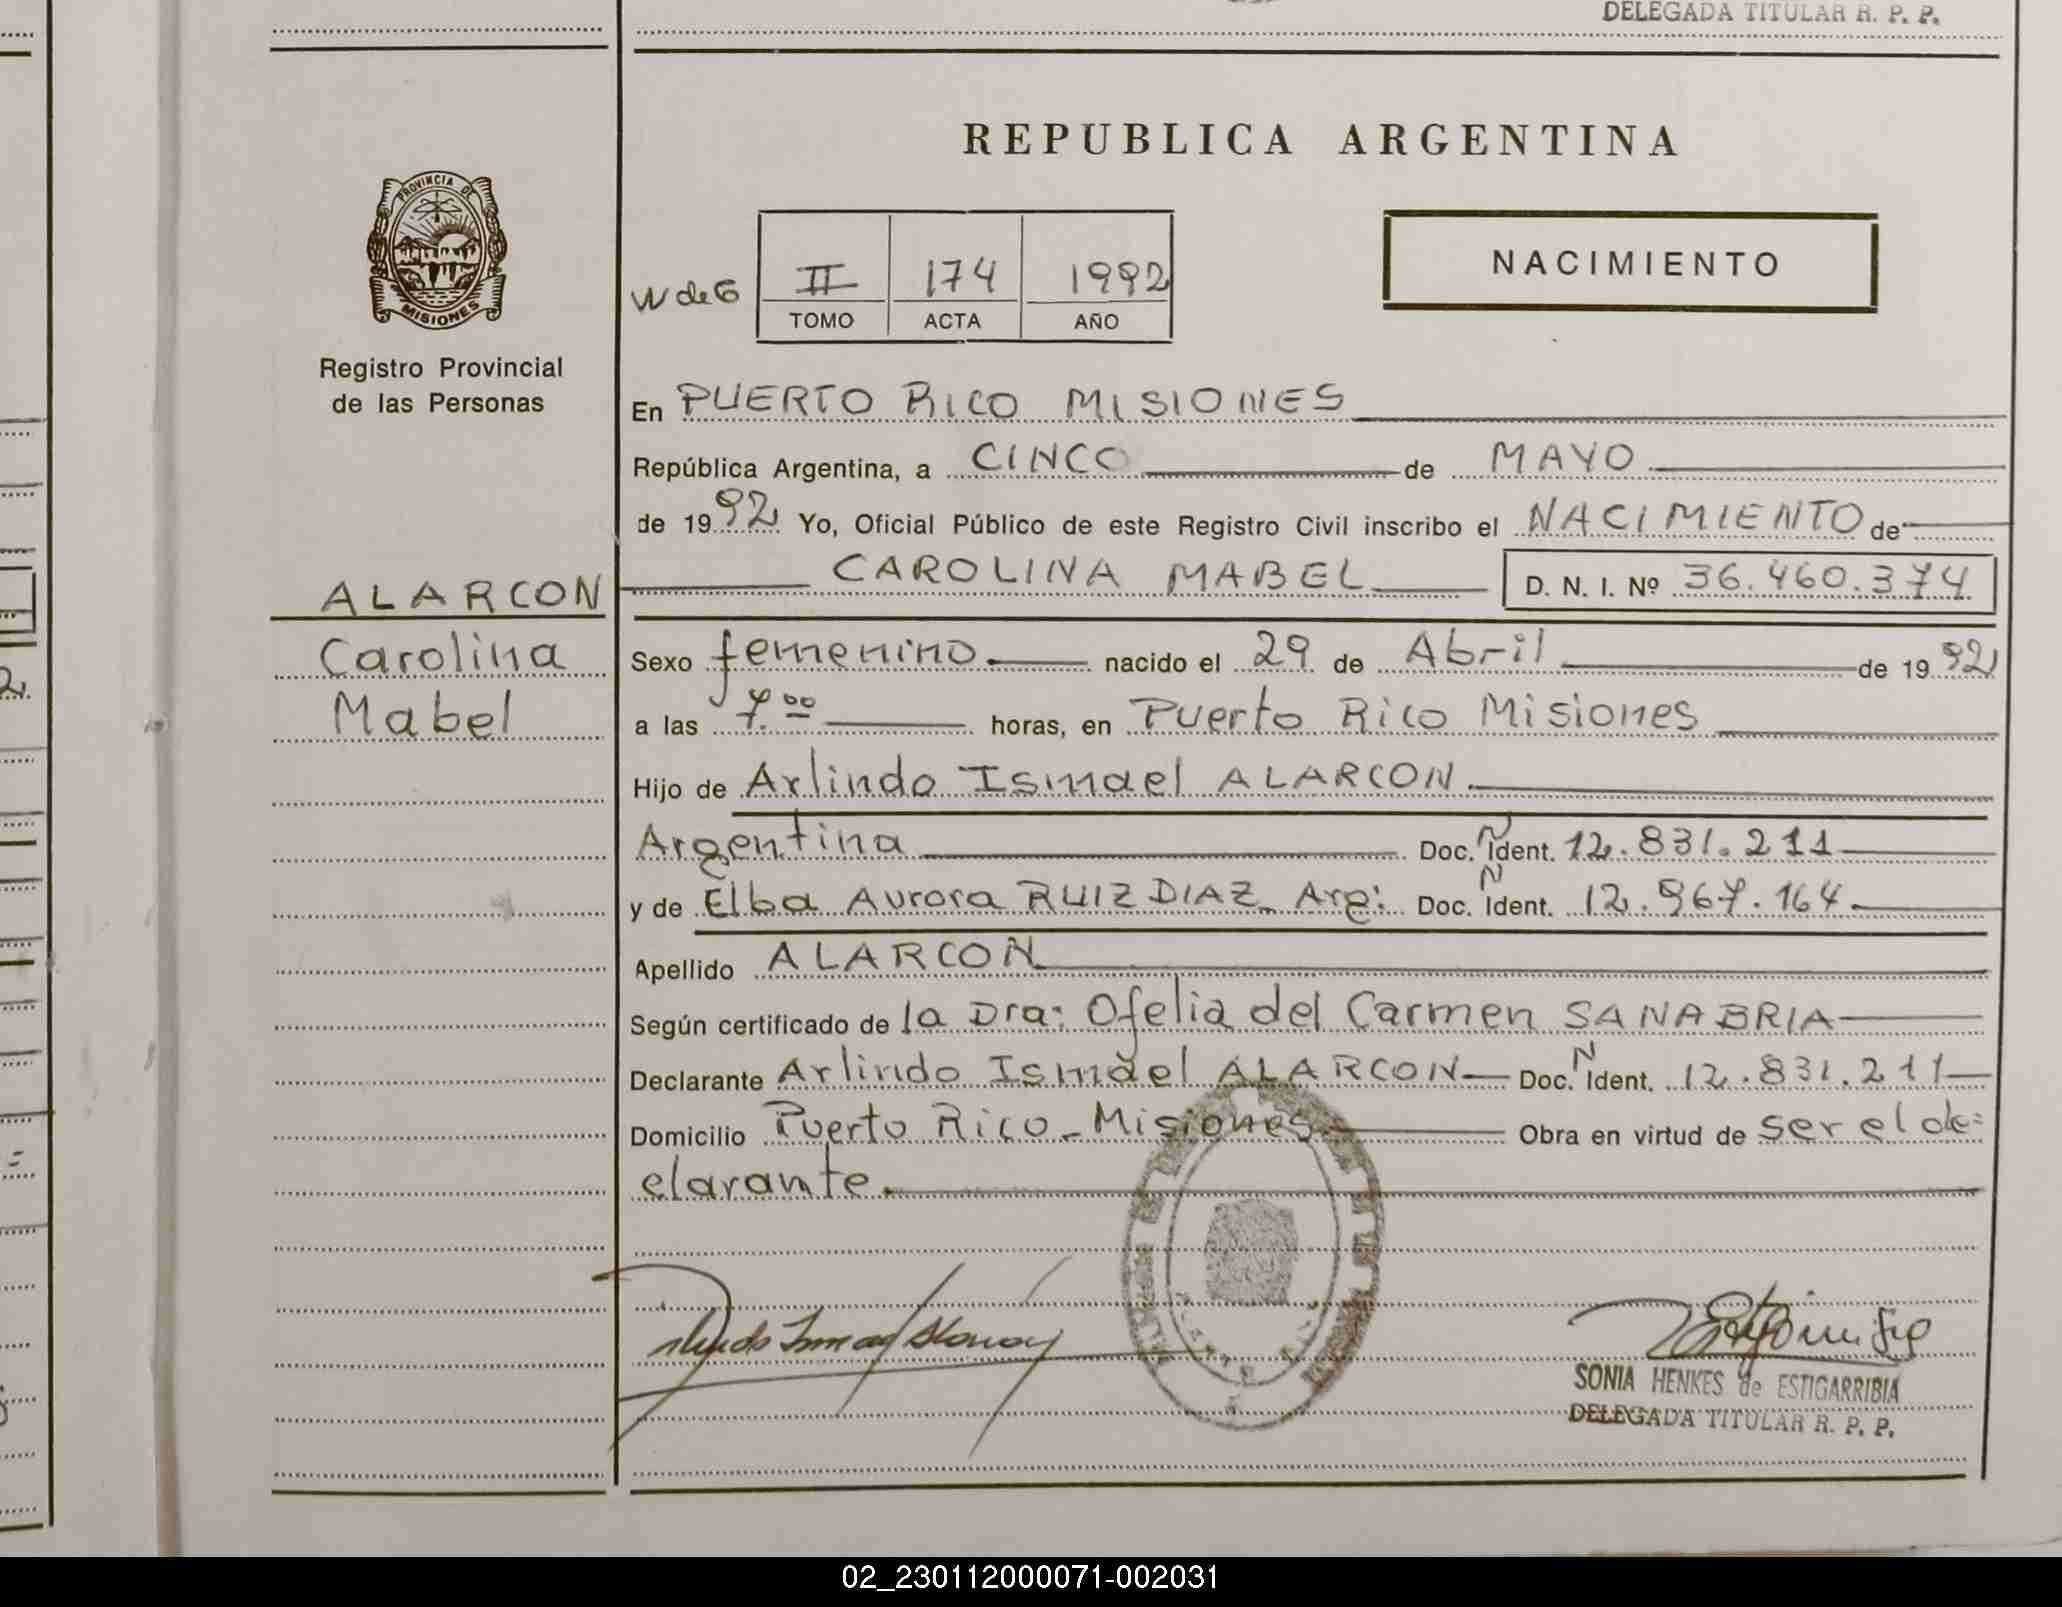 DELEGADA TITULAR R. P. P.
REPUBLICA ARGENTINA
PROVINCIA DE
MISIONES
Registro Provincial
de las Personas
W de G
II 174 1992
TOMO ACTA AÑO
NACIMIENTO
En PUERTO RICO MISIONES
República Argentina, a CINCO de MAYO
de 1992 Yo, Oficial Público de este Registro Civil inscribo el NACIMIENTO de
CAROLINA MABEL D. N. I. Nº 36.460.374
ALARCON
Carolina
Mabel
Sexo femenino nacido el 29 de Abril de 1992
a las 7.00 horas, en Puerto Rico Misiones
Hijo de Arlindo Ismael ALARCON
Argentina Doc. N Ident. 12.831.211
y de Elba Aurora RUIZ DIAZ Arg: Doc. N Ident. 12.967.164
Apellido ALARCON
Según certificado de la Dra: Ofelia del Carmen SANABRIA
Declarante Arlindo Ismael ALARCON Doc. N Ident. 12.831.211
Domicilio Puerto Rico - Misiones Obra en virtud de ser el de=
clarante.
SONIA HENKES de ESTIGARRIBIA
DELEGADA TITULAR R. P. P.
02_230112000071-002031